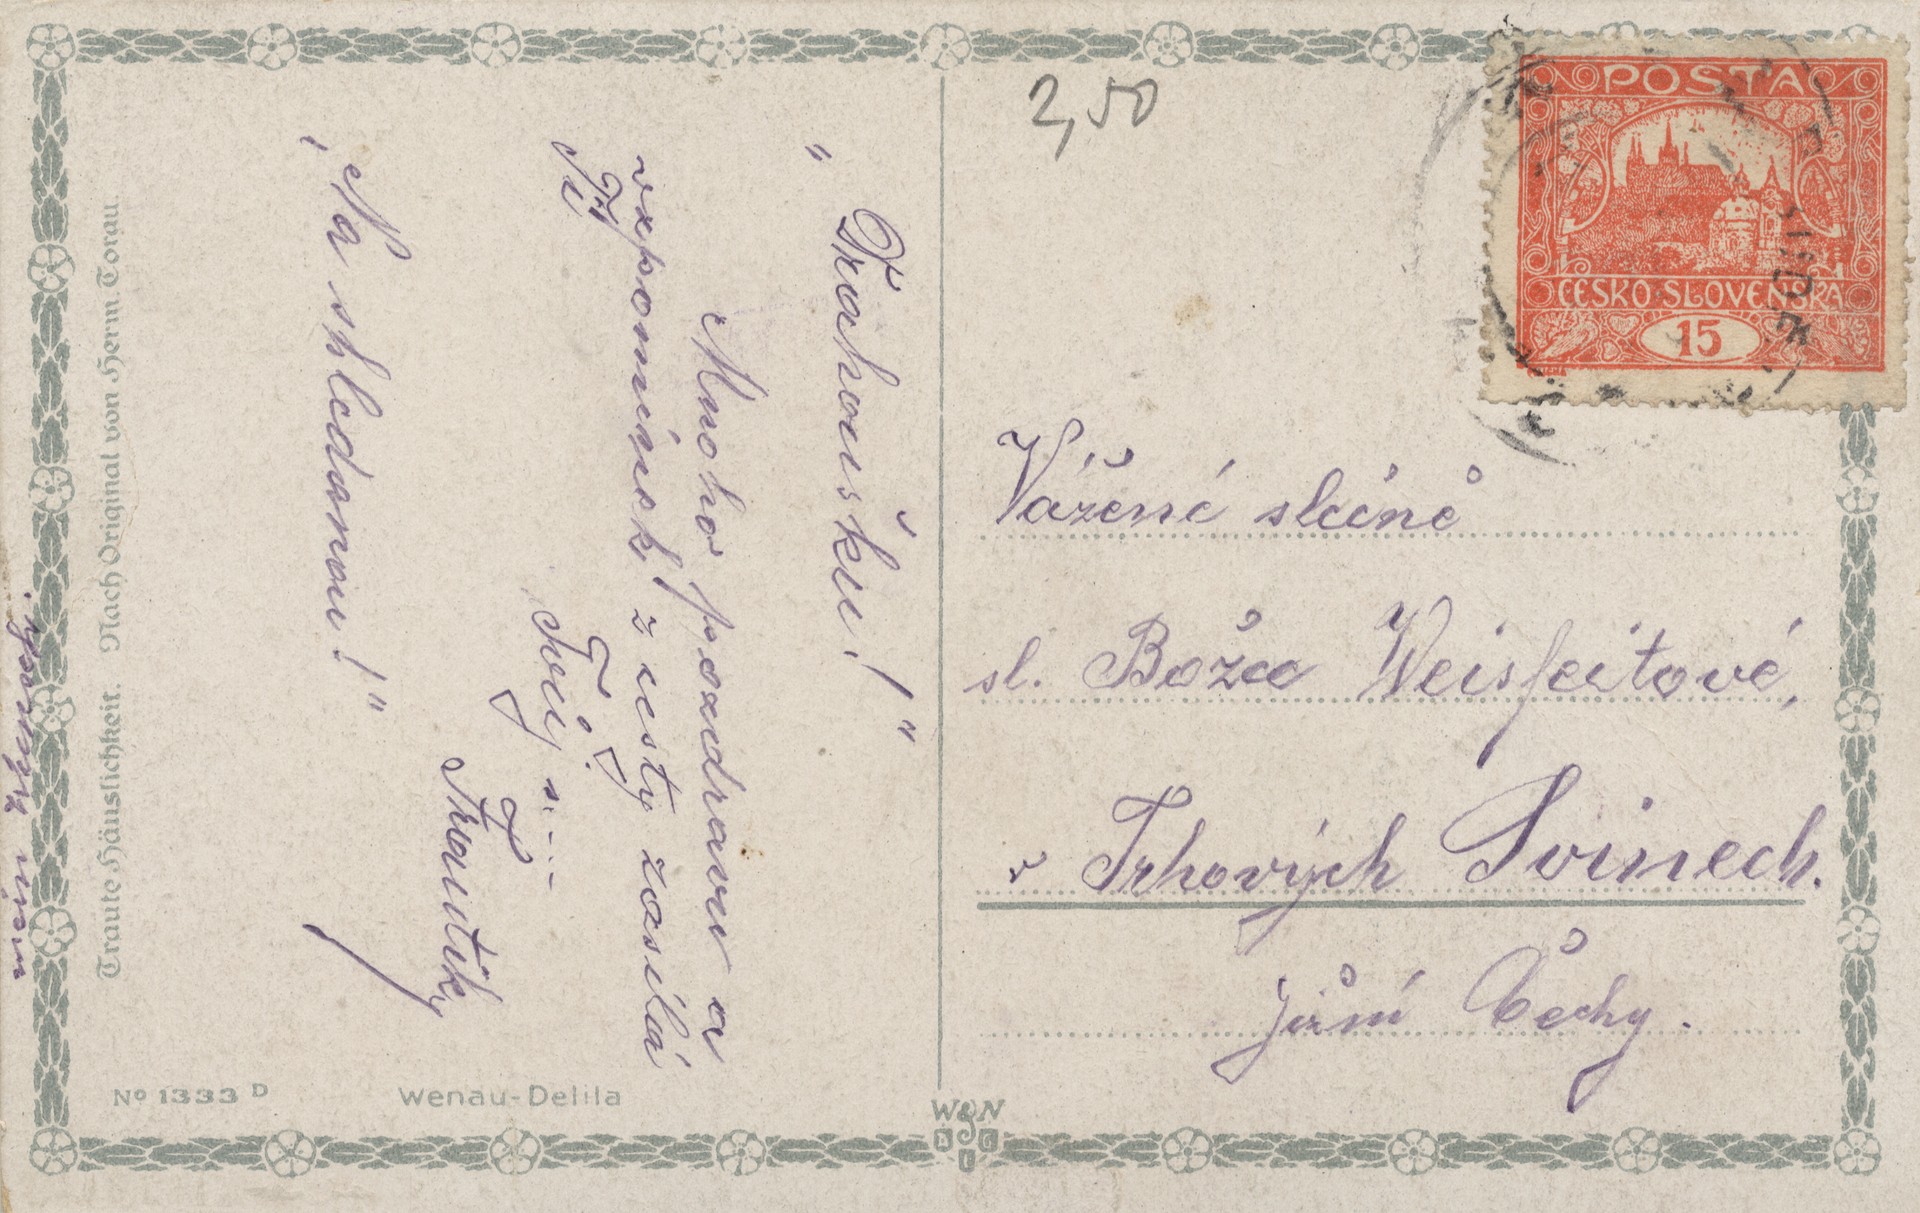 „Drahoušku!"
Mnoho pozdravu a
vzpomínek z cesty zasílá
Ti
Tvůj s....
Frantík
„Na shledanou!"
Traute Häuslichkeit. Nach Original von Herm. Torau.
No 1333 D
Wenau-Delila
W&N
2,50
POSTA
ČESKO-SLOVENSKÁ
15
Vážené slečně
sl. Božce Weisfeitové,
v Trhových Svinech.
jižní Čechy.